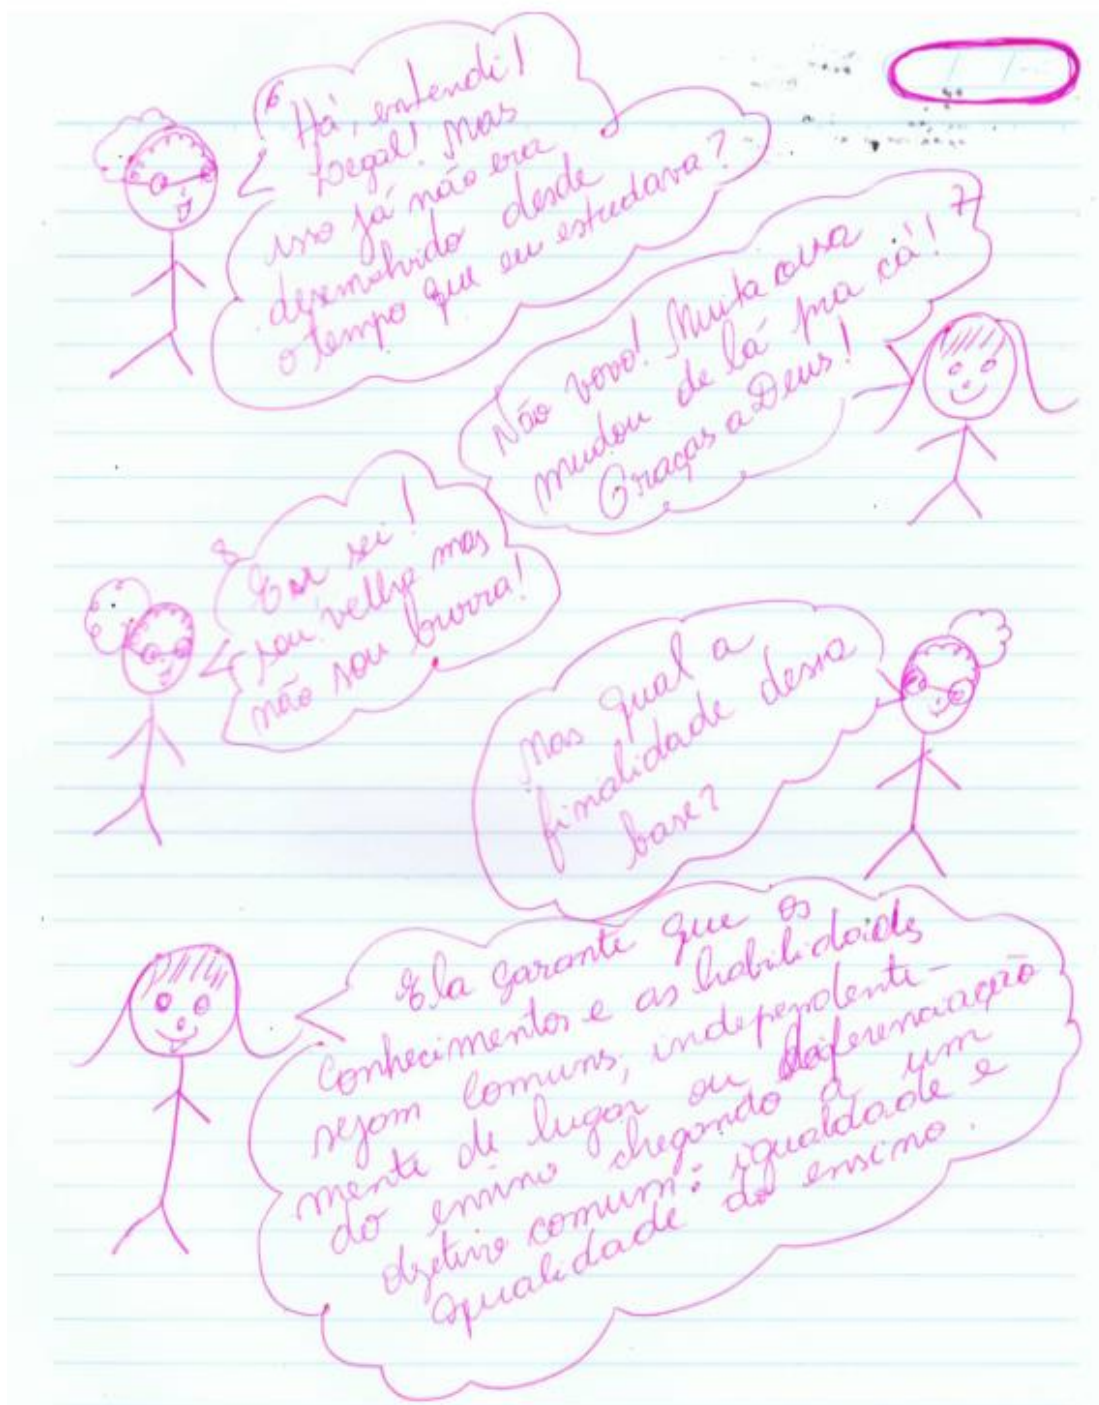 6
Há, entendi!
Legal! Mas
isso já não era
desenvolvido desde
o tempo que eu estudava?
7
Não vovó! Muita coisa
mudou de lá pra cá!
Graças a Deus!
8
Eu sei!
sou velha mas
não sou burra!
Mas qual a
finalidade dessa
base?
Ela garante que os
conhecimentos e as habilidades
sejam comuns, independente-
mente de lugar ou diferenciação
do ensino chegando a um
objetivo comum: igualdade e
qualidade do ensino.